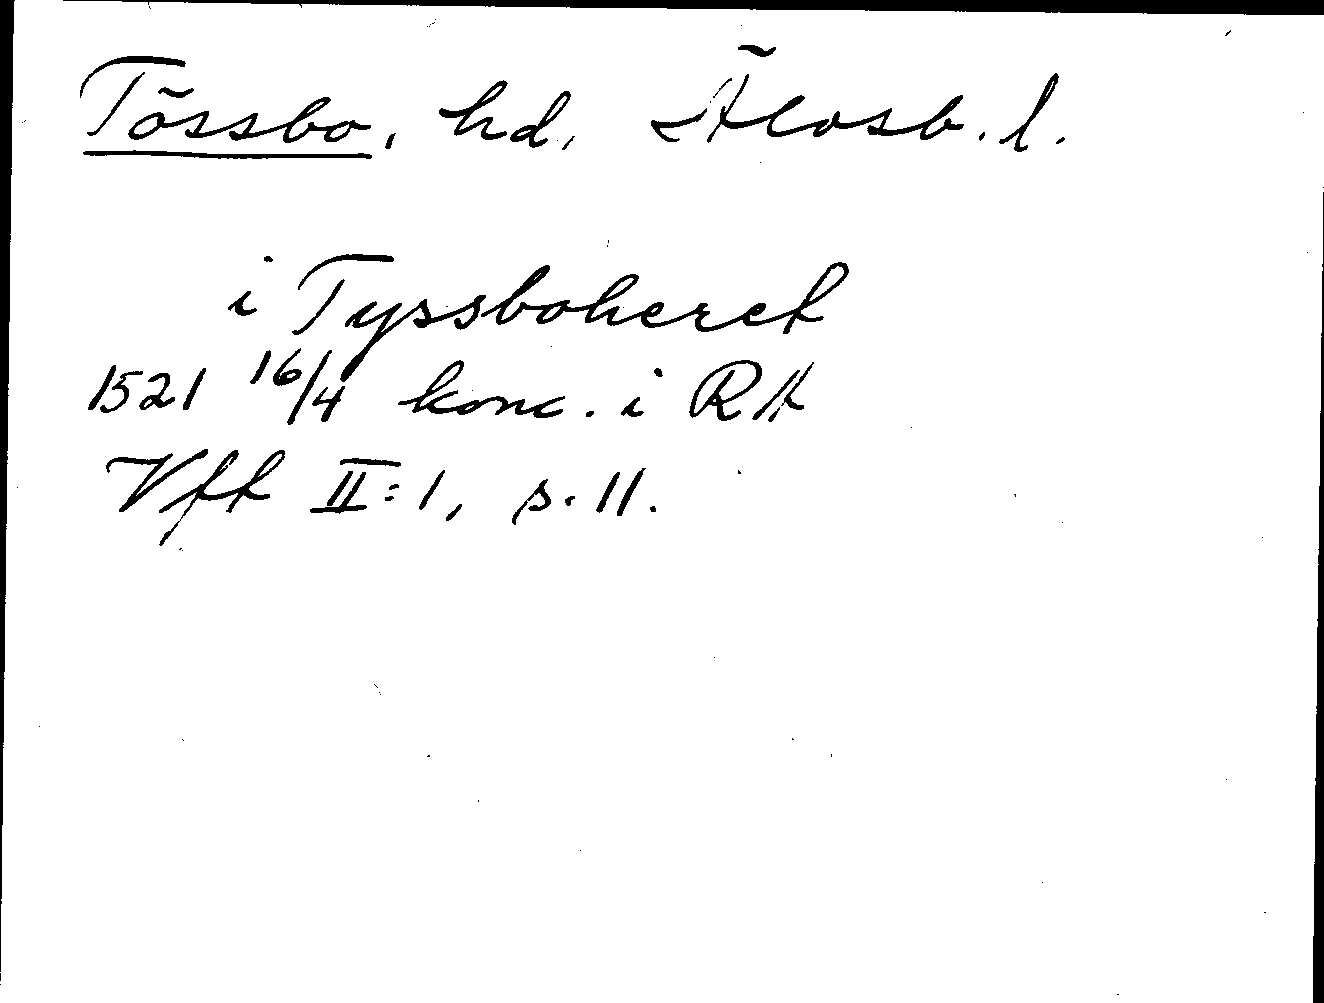 Tössbo, hd, Älvsb. l.
i Tyssboheret
1521 16/4 konc. i RA
Vff II:1, s. 11.